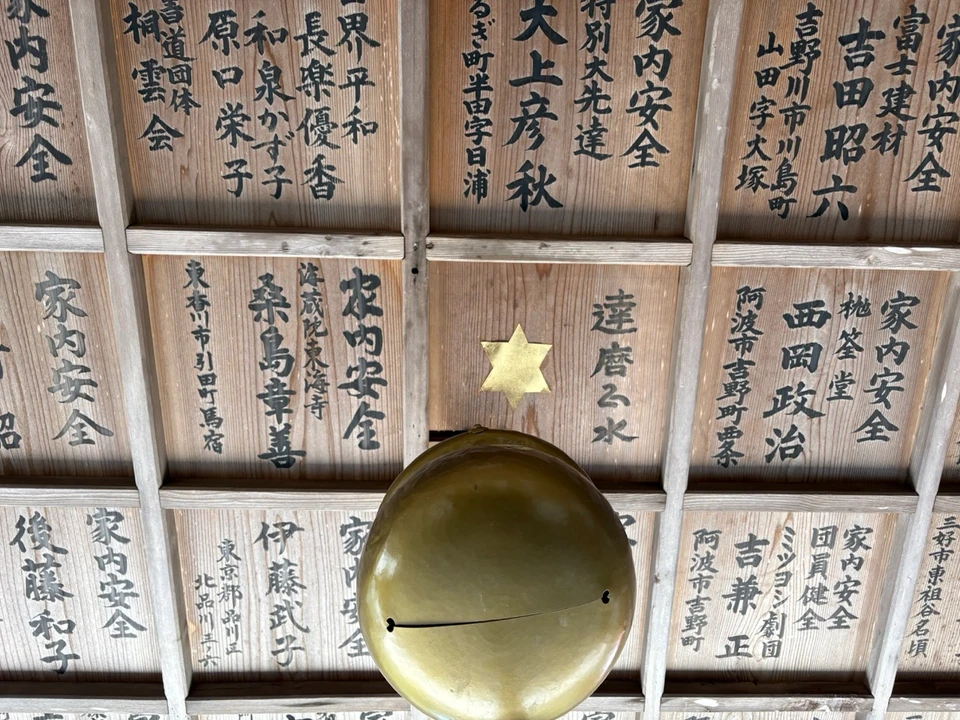 家内安全
富士建材
吉田昭六
吉野川市川島町
山田字大塚
家内安全
特別大先達
大上彦秋
るぎ町半田字日浦
世界平和
長楽優香
和泉かず子
原口栄子
書道団体
桐雲会
家内安全
家内安全
桃筌堂
西岡政治
阿波市吉野町
達磨公水
家内安全
海蔵院東海寺
桑島章善
東香川市引田町馬宿
家内安全
三好市東祖谷名頃
家内安全
団員健全
ミツヨシ劇団
吉兼正
阿波市吉野町
家内安全
伊藤武子
東京都品川
北品川三ノ六
家内安全
後藤和子